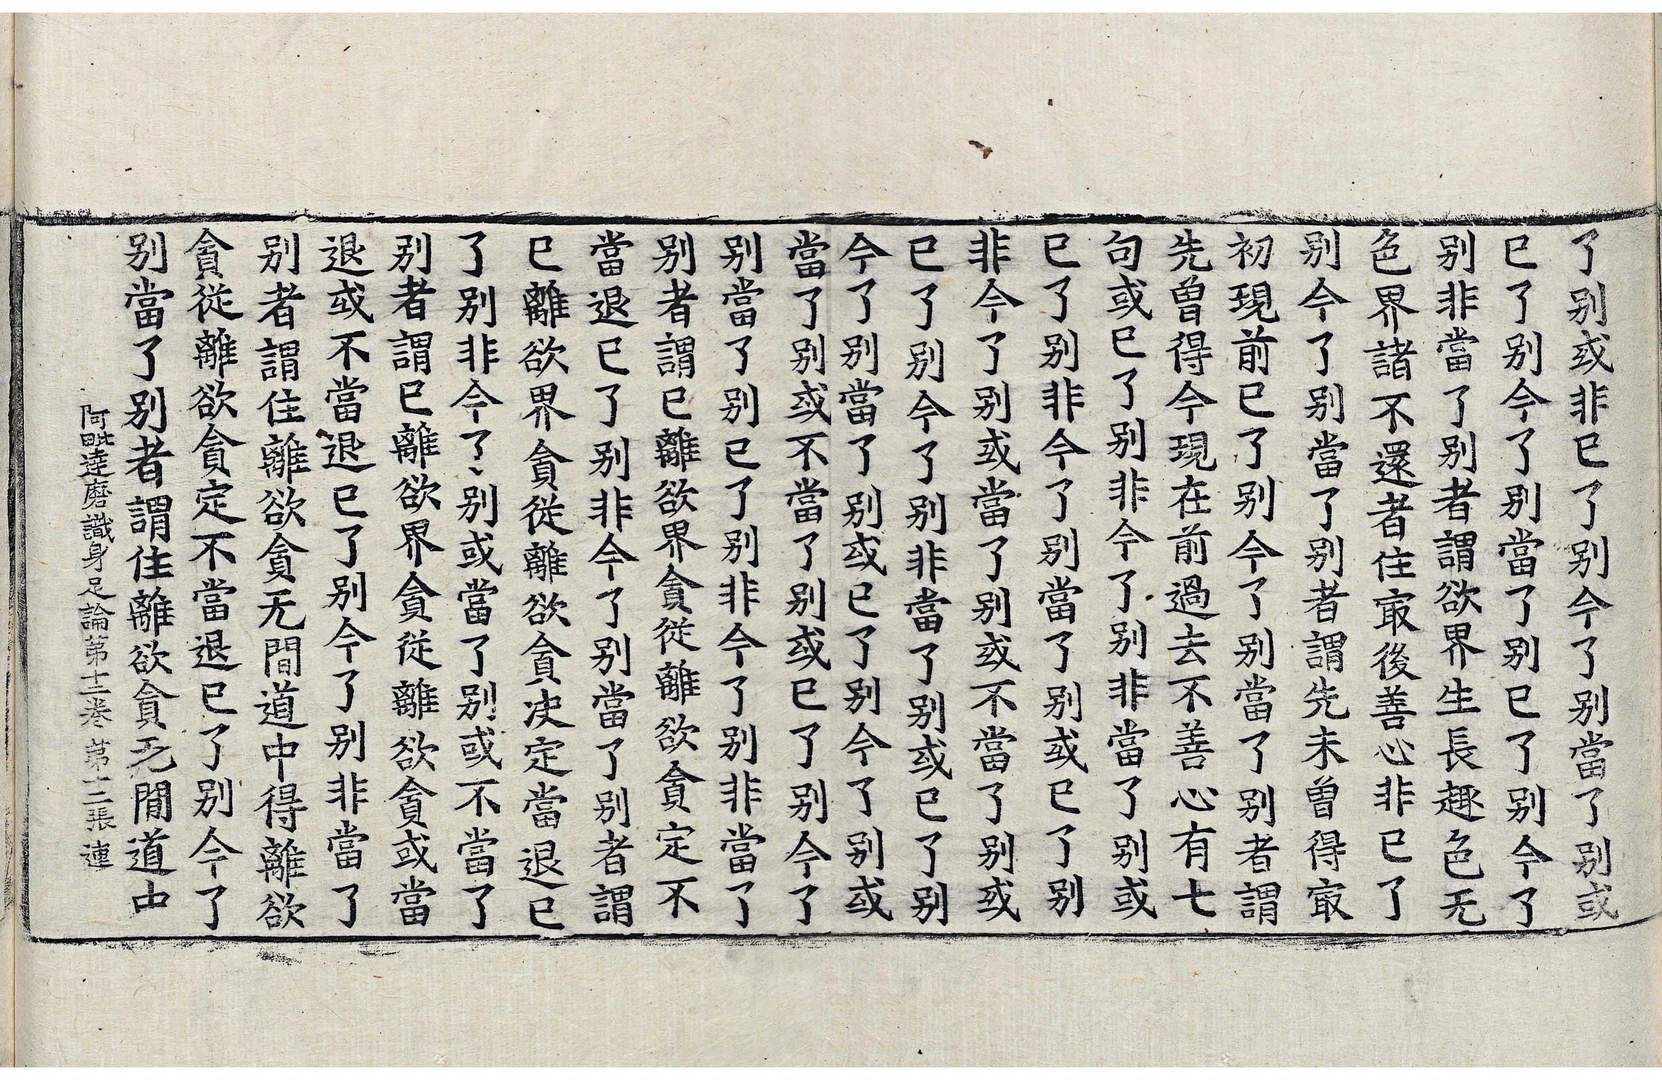 了别或非已了别今了别當了别或
已了别今了别當了别已了别今了
别非當了别者謂欲界生長趣色无
色界諸不還者住㝡後善心非已了
别今了别當了别者謂先未曽得㝡
初現前已了别今了别當了别者謂
先曽得今現在前過去不善心有七
句或已了别非今了别非當了别或
已了别非今了别當了别或已了别
非今了别或當了别或不當了别或
已了别今了别非當了别或已了别
今了别當了别或已了别今了别或
當了别或不當了别或已了别今了
别當了别已了别非今了别非當了
别者謂已離欲界貪從離欲貪定不
當退已了别非今了别當了别者謂
已離欲界貪從離欲貪决定當退已
了别非今了别或當了别或不當了
别者謂已離欲界貪從離欲貪或當
退或不當退已了别今了别非當了
别者謂住離欲貪无間道中得離欲
貪從離欲貪定不當退已了别今了
别當了别者謂住離欲貪无間道中
阿毗達磨識身足論第十二卷 第十二張 連